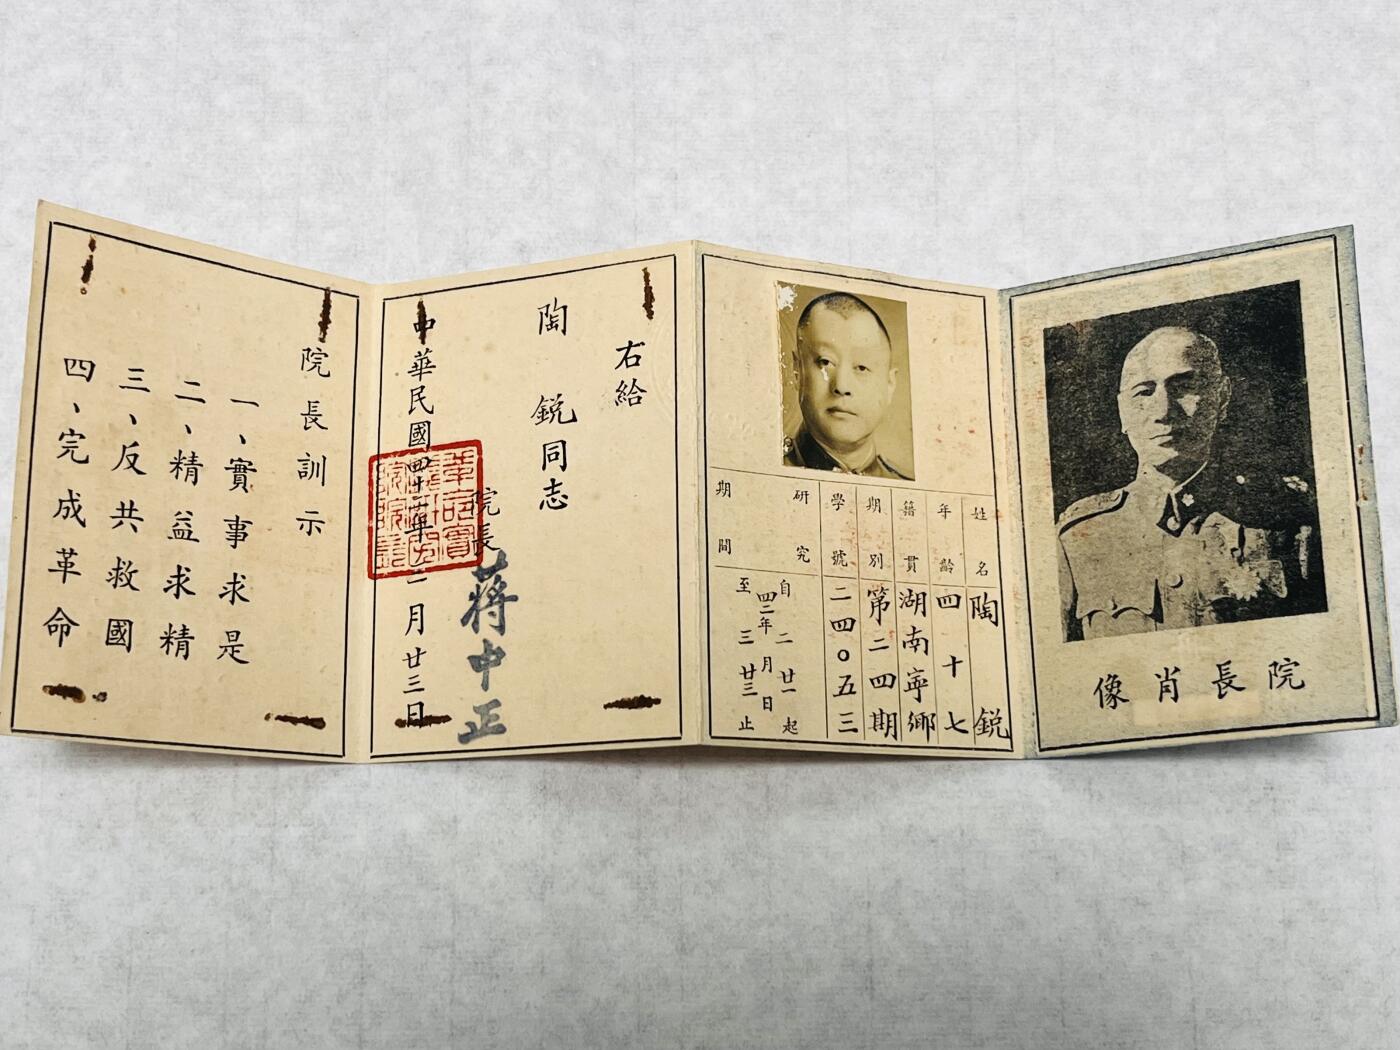 院長肖像
姓名 陶銳
年齡 四十七
籍貫 湖南寧鄉
期別 第二四期
學號 二四〇五三
研究期間
自 二 廿一 起
四二年 月 日
至 三 廿三 止
右給
陶銳同志
院長 蔣中正
中華民國四十二年三月廿三日
院長訓示
一、實事求是
二、精益求精
三、反共救國
四、完成革命